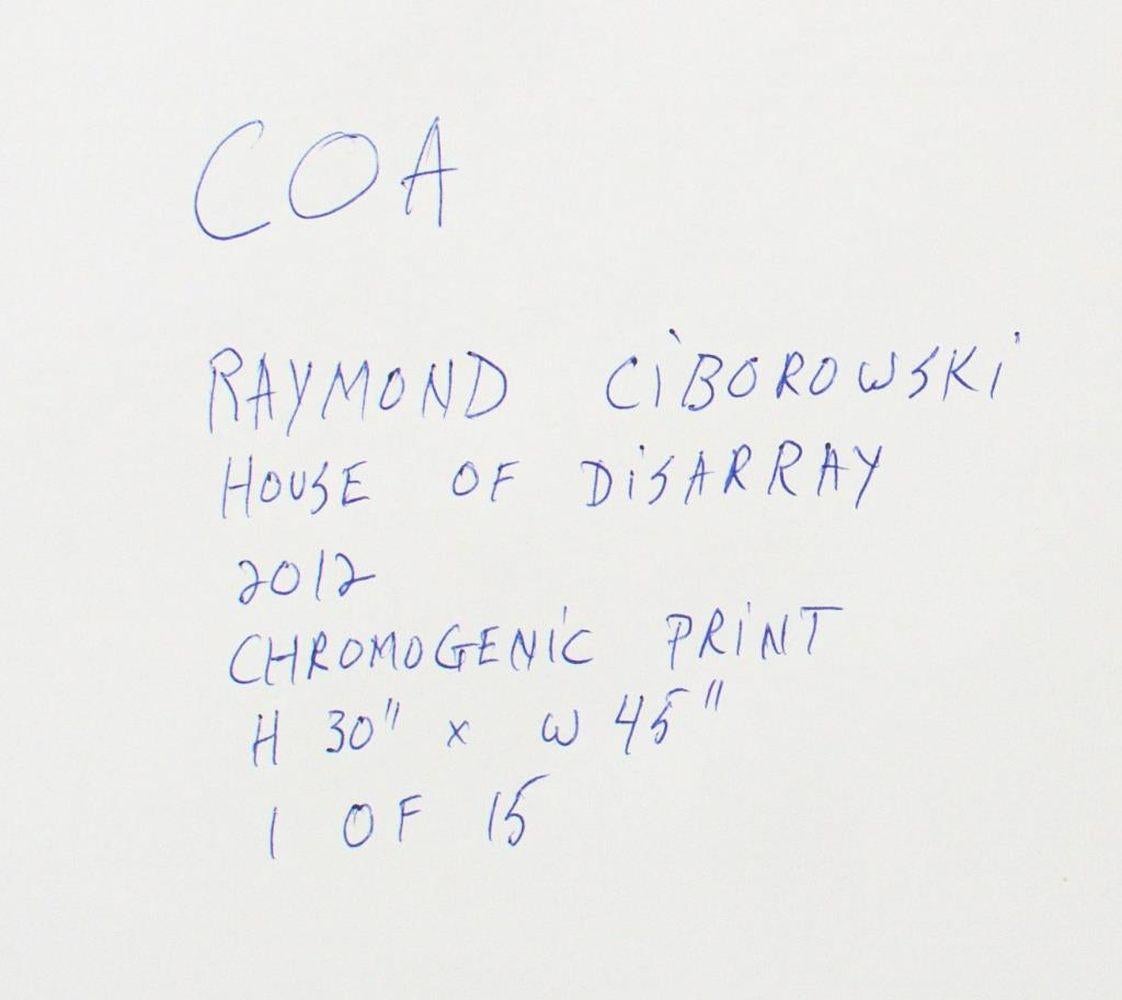 COA
RAYMOND CiBOROWSKi
HOUSE OF DiSARRAY
2012
CHROMOGENiC PRiNT
H 30" x W 45"
1 OF 15